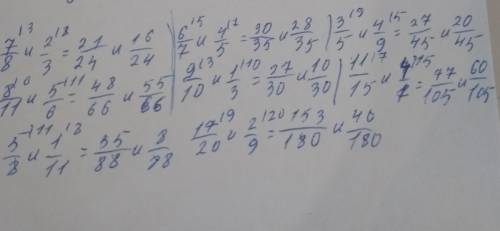 7/8 \3 и 2/3 \8 = 21/24 и 16/24 | 6/7 \5 и 4/5 \7 = 30/35 и 28/35 | 3/5 \9 и 4/9 \5 = 27/45 и 20/45
8/11 \6 и 5/6 \11 = 48/66 и 55/66 | 9/10 \3 и 1/3 \10 = 27/30 и 10/30 | 11/15 \7 и 4/7 \15 = 77/105 и 60/105
5/8 \11 и 1/11 \8 = 55/88 и 8/88 17/20 \9 и 2/9 \20 = 153/180 и 40/180